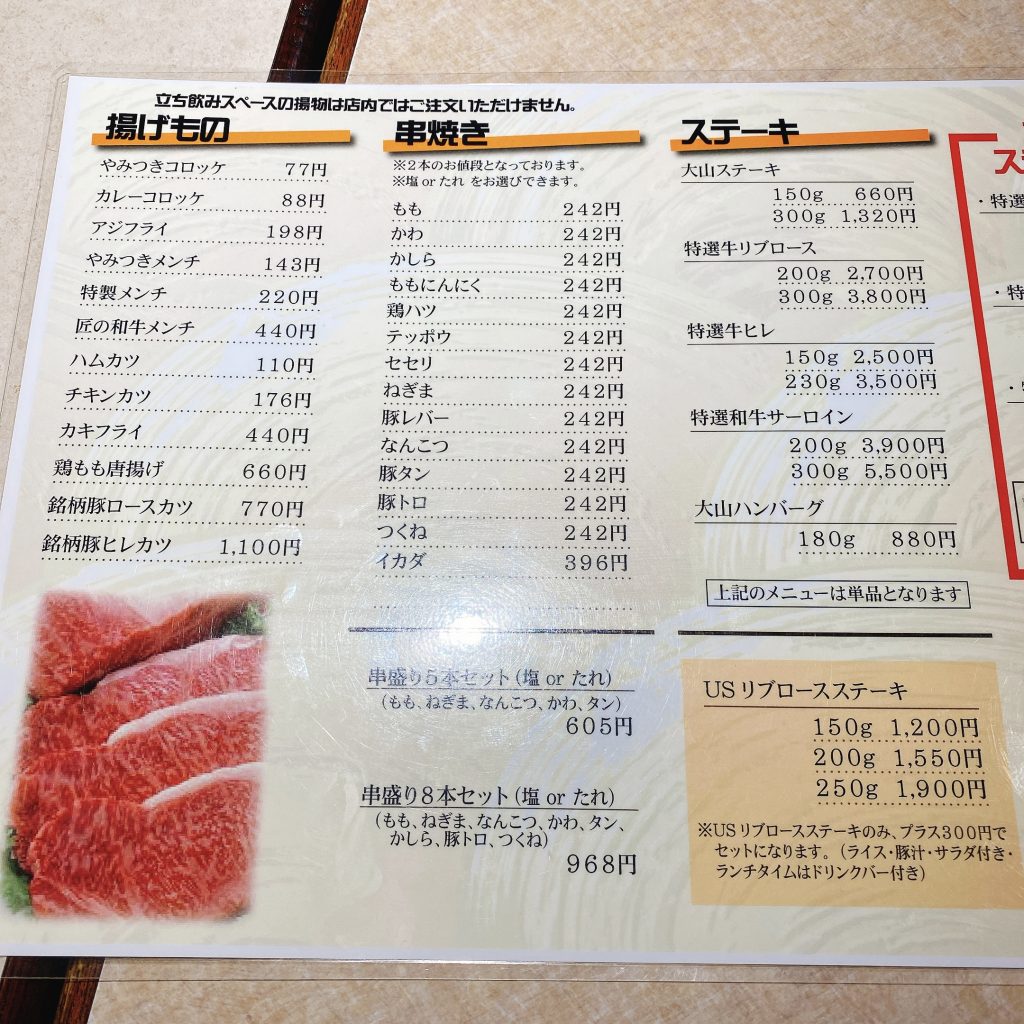 立ち飲みスペースの揚物は店内ではご注文いただけません。
揚げもの
やみつきコロッケ 77円
カレーコロッケ 88円
アジフライ 198円
やみつきメンチ 143円
特製メンチ 220円
匠の和牛メンチ 440円
ハムカツ 110円
チキンカツ 176円
カキフライ 440円
鶏もも唐揚げ 660円
銘柄豚ロースカツ 770円
銘柄豚ヒレカツ 1,100円
串焼き
※2本のお値段となっております。
※塩 or たれ をお選びできます。
もも 242円
かわ 242円
かしら 242円
ももにんにく 242円
鶏ハツ 242円
テッポウ 242円
セセリ 242円
ねぎま 242円
豚レバー 242円
なんこつ 242円
豚タン 242円
豚トロ 242円
つくね 242円
イカダ 396円
串盛り5本セット(塩 or たれ)
(もも、ねぎま、なんこつ、かわ、タン)
605円
串盛り8本セット(塩 or たれ)
(もも、ねぎま、なんこつ、かわ、タン、
かしら、豚トロ、つくね)
968円
ステーキ
大山ステーキ
150g 660円
300g 1,320円
特選牛リブロース
200g 2,700円
300g 3,800円
特選牛ヒレ
150g 2,500円
230g 3,500円
特選和牛サーロイン
200g 3,900円
300g 5,500円
大山ハンバーグ
180g 880円
上記のメニューは単品となります
USリブロースステーキ
150g 1,200円
200g 1,550円
250g 1,900円
※USリブロースステーキのみ、プラス300円で
セットになります。(ライス・豚汁・サラダ付き・
ランチタイムはドリンクバー付き)
ス
・特選
・特